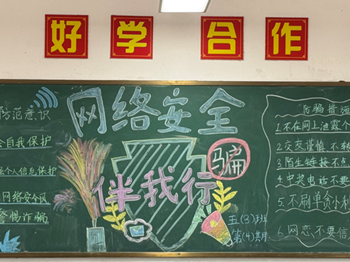 好学合作
网络安全
伴我行
骗
防范意识
全自我保护
个人信息保护
网络安全
警惕诈骗
五(3)班
第(4)小组
防骗普
1.不在网上泄露个
2.交友谨慎 不
3.陌生链接不点
4.中奖电话不要
5.不刷单贪小利
6.网恋不要信